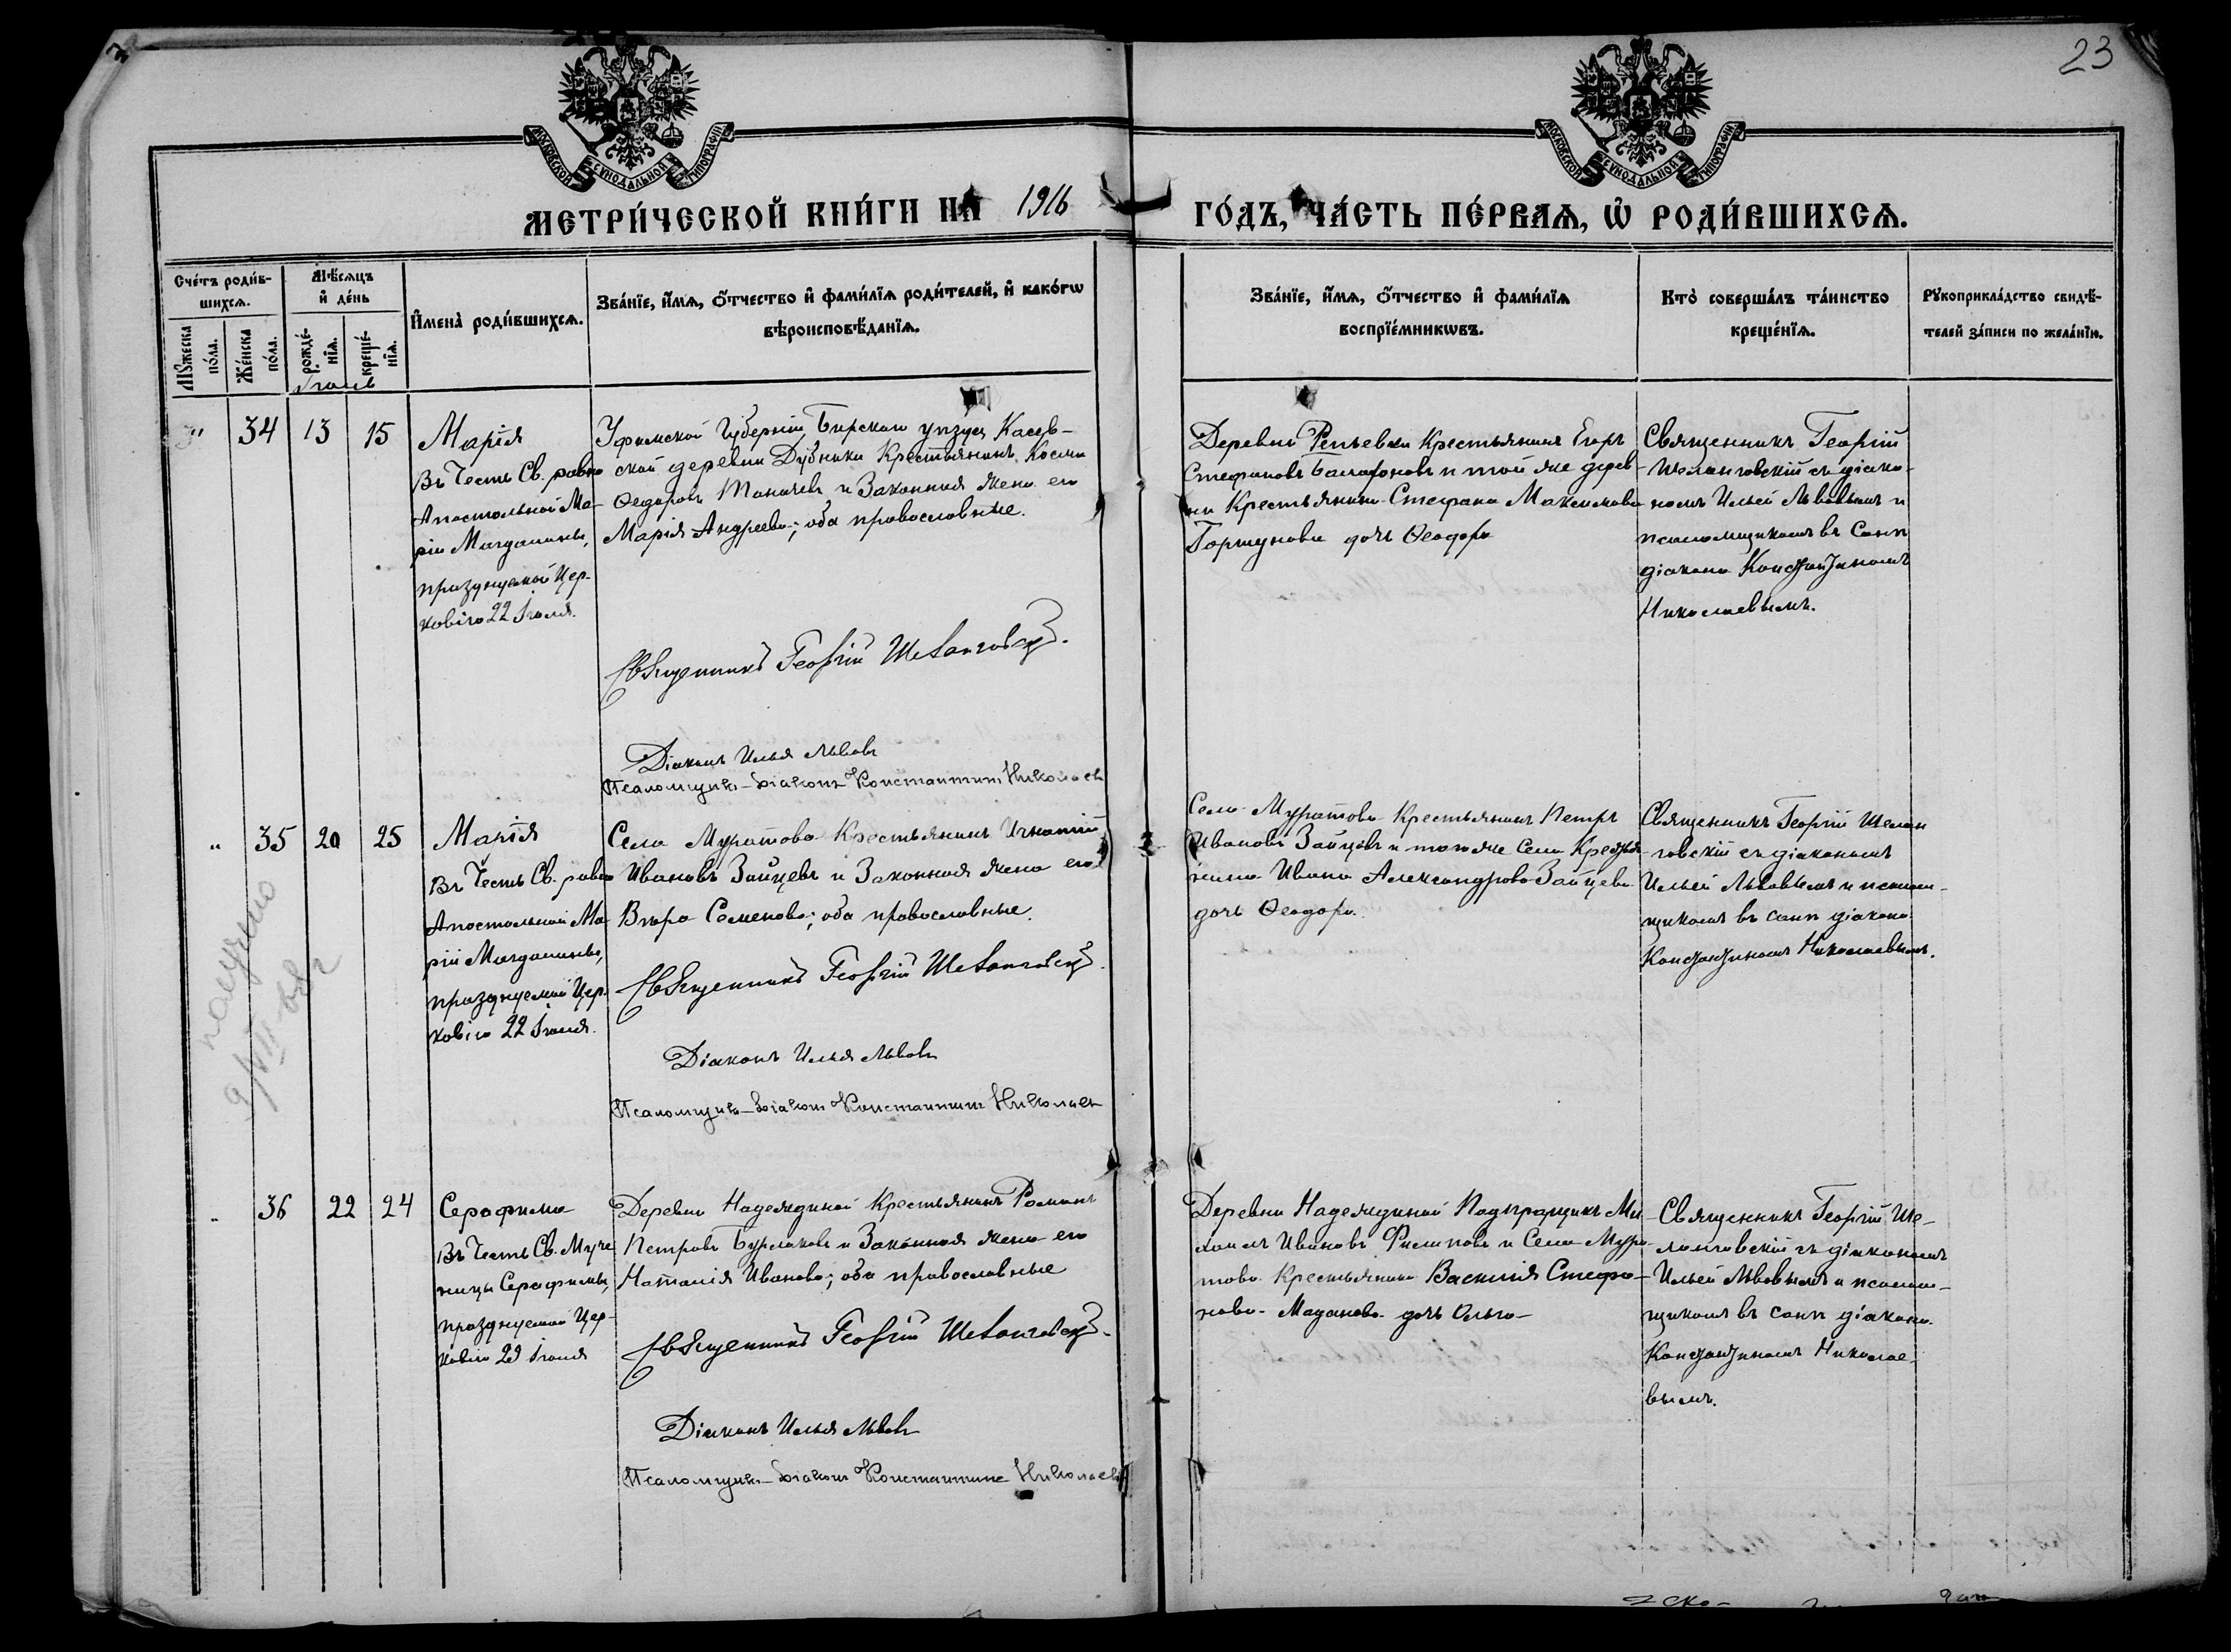 23
МОСКОВСКОЙ СѴНОДАЛЬНОЙ ТИПОГРАФІИ
МОСКОВСКОЙ СѴНОДАЛЬНОЙ ТИПОГРАФІИ
МЕТРИ́ЧЕСКОЙ КНИ́ГИ НА 1916 ГО́ДЪ, ЧА́СТЬ ПЕ́РВАѦ, Ѡ҆ РОДИ́ВШИХСѦ.
Сче́тъ роди́в-
шихсѧ.
Мꙋ́жеска
по́ла.
Же́нска
по́ла.
Мѣ́сѧцъ
и҆ де́нь
рожде́-
нїѧ.
креще́-
нїѧ.
Іюль
И҆мена̀ роди́вшихсѧ.
Зва́нїе, и҆́мѧ, ѻ҆́тчество и҆ фами́лїѧ роди́телей, и҆ како́гѡ
вѣроисповѣ́данїѧ.
Зва́нїе, и҆́мѧ, ѻ҆́тчество и҆ фами́лїѧ
воспрїе́мникѡвъ.
Кто̀ соверша́лъ та́инство
креще́нїѧ.
Рꙋкоприкла́дство свидѣ́-
телей за́писи по жела́нїю.
" 34 13 15
Марія
Въ Честь Св. равно
Апостольной Ма-
ріи Магдалины,
празднуемой Цер-
ковію 22 Іюля.
Уфимской Губерніи, Бирскаго уѣзда, Касев-
ской деревни Дубники Крестьянинъ Косма
Ѳеодоровъ и Законная жена его
Марія Андреева; оба православные.
Священникъ Георгій Шеланговскій.
Діаконъ Илья Львовъ
Псаломщикъ-діаконъ Константинъ Николаевъ
Деревни Репьевки Крестьянинъ Егоръ
Стефановъ и той же дерев-
ни Крестьянина Стефана Максимова
Горшунова дочь Ѳеодора
Священникъ Георгій
Шеланговскій съ діако-
номъ Ильей Львовымъ и
псаломщикомъ въ санѣ
діакона Константиномъ
Николаевымъ.
" 35 20 25
Марія
Въ Честь Св. равно
Апостольной Ма-
ріи Магдалины,
празднуемой Цер-
ковію 22 Іюля.
Села Муратова Крестьянинъ Игнатій
Ивановъ Зайцевъ и Законная жена его
Вѣра Семенова; оба православные.
Священникъ Георгій Шеланговскій.
Діаконъ Илья Львовъ
Псаломщикъ-діаконъ Константинъ Николаевъ
Села Муратова Крестьянинъ Петръ
Ивановъ Зайцевъ и того же Села Крестья-
нина Ивана Александрова Зайцева
дочь Ѳеодора.
Священникъ Георгій Шелан-
говскій съ діакономъ
Ильей Львовымъ и псалом-
щикомъ въ санѣ діакона
Константиномъ Николаевымъ.
получено
" 36 22 24
Серафима
Въ Честь Св. Муче
ницы Серафимы,
празднуемой Цер-
ковію 29 Іюля
Деревни Надеждиной Крестьянинъ Романъ
Петровъ Бурлаковъ и Законная жена его
Наталія Иванова; оба православные
Священникъ Георгій Шеланговскій.
Діаконъ Илья Львовъ
Псаломщикъ-діаконъ Константинъ Николаевъ
Деревни Надеждиной Ми-
хаилъ Ивановъ Филиповъ и Села Мура-
това Крестьянина Василія Стефа-
нова Маданова дочь Ольга
Священникъ Георгій Ше-
ланговскій съ діакономъ
Ильей Львовымъ и псалом-
щикомъ въ санѣ діакона
Константиномъ Николае-
вымъ.